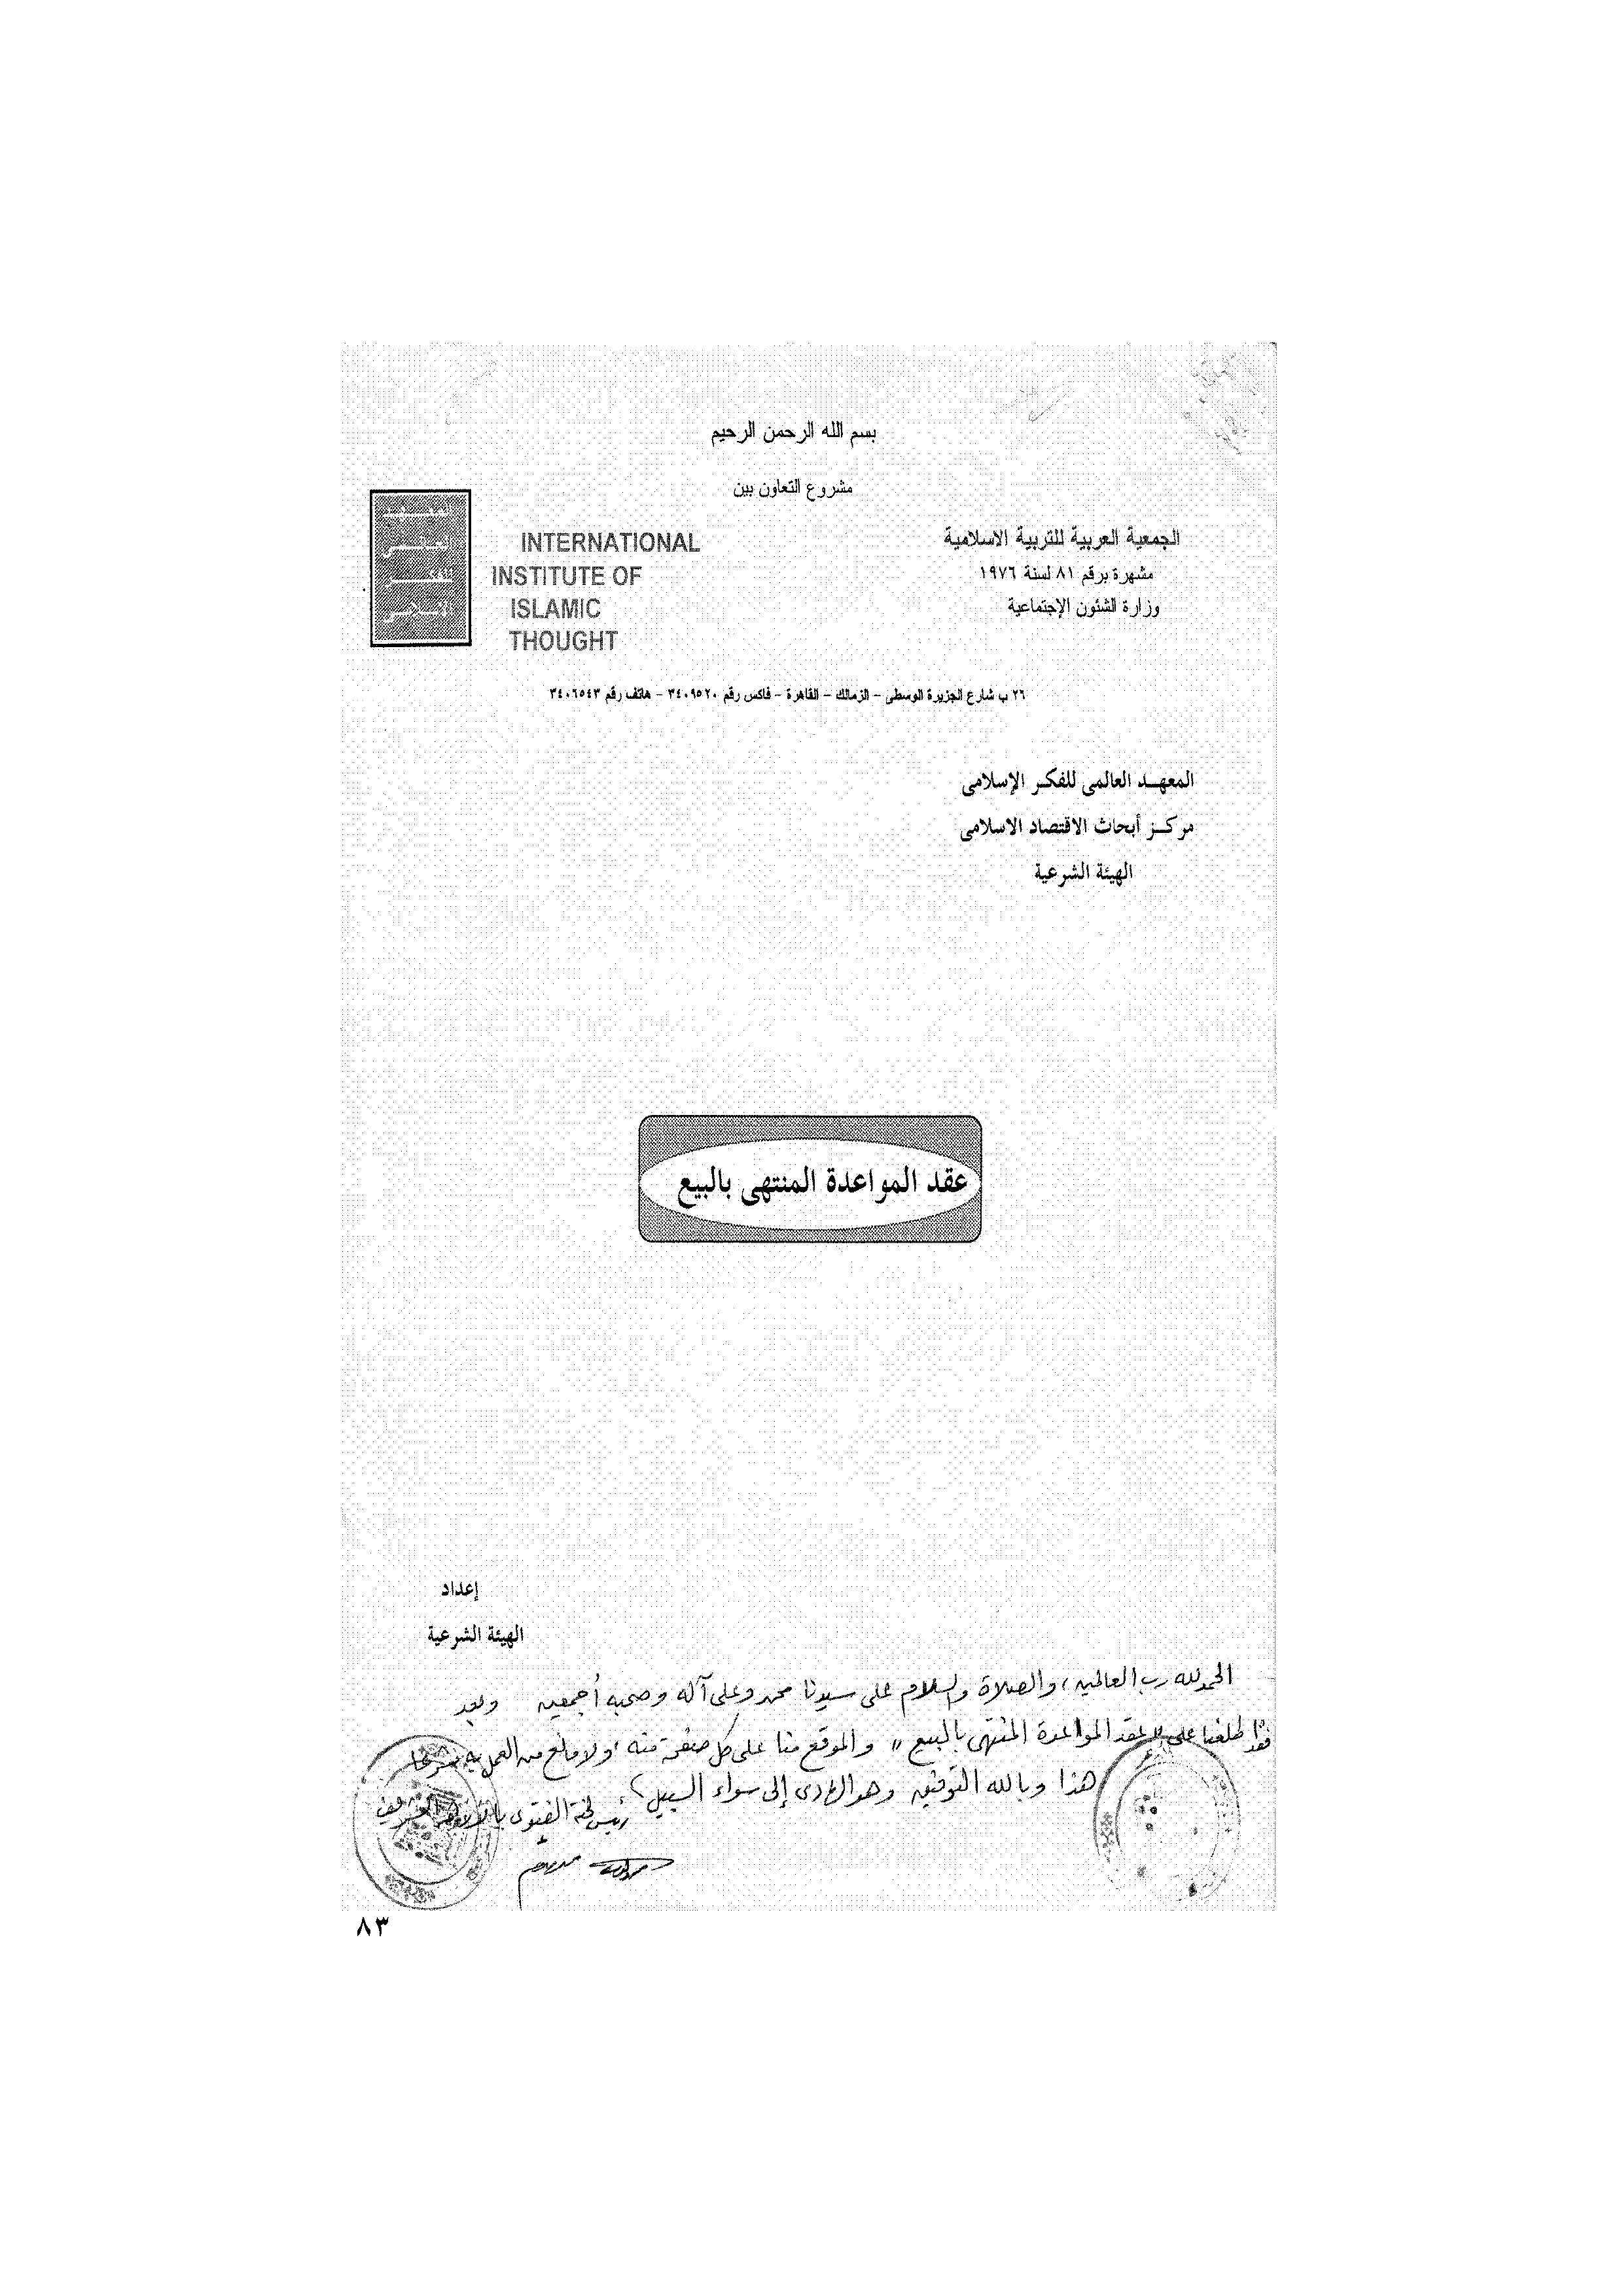 بسم الله الرحمن الرحيم
مشروع التعاون بين
الجمعية العربية للتربية الاسلامية
مشهرة برقم ٨١ لسنة ١٩٧٦
وزارة الشئون الإجتماعية
المعهد
العالمى
للفكر
الإسلامى
INTERNATIONAL
INSTITUTE OF
ISLAMIC
THOUGHT
٢٦ ب شارع الجزيرة الوسطى – الزمالك – القاهرة – فاكس رقم ٣٤٠٩٥٢٠ – هاتف رقم ٣٤٠٦٥٤٣
المعهـد العالمى للفكـر الإسلامى
مركـز أبحاث الاقتصاد الاسلامى
الهيئة الشرعية
عقد المواعدة المنتهى بالبيع
إعداد
الهيئة الشرعية
الحمد لله رب العالمين، والصلاة والسلام على سيدنا محمد وعلى آله وصحبه أجمعين وبعد
فقد اطلعنا على "عقد المواعدة المنتهى بالبيع" والموقع منا على كل صفحة منه، ولا مانع من العمل به شرعا
هذا وبالله التوفيق وهو الهادى إلى سواء السبيل
رئيس لجنة الفتوى بالأزهر الشريف
٨٣